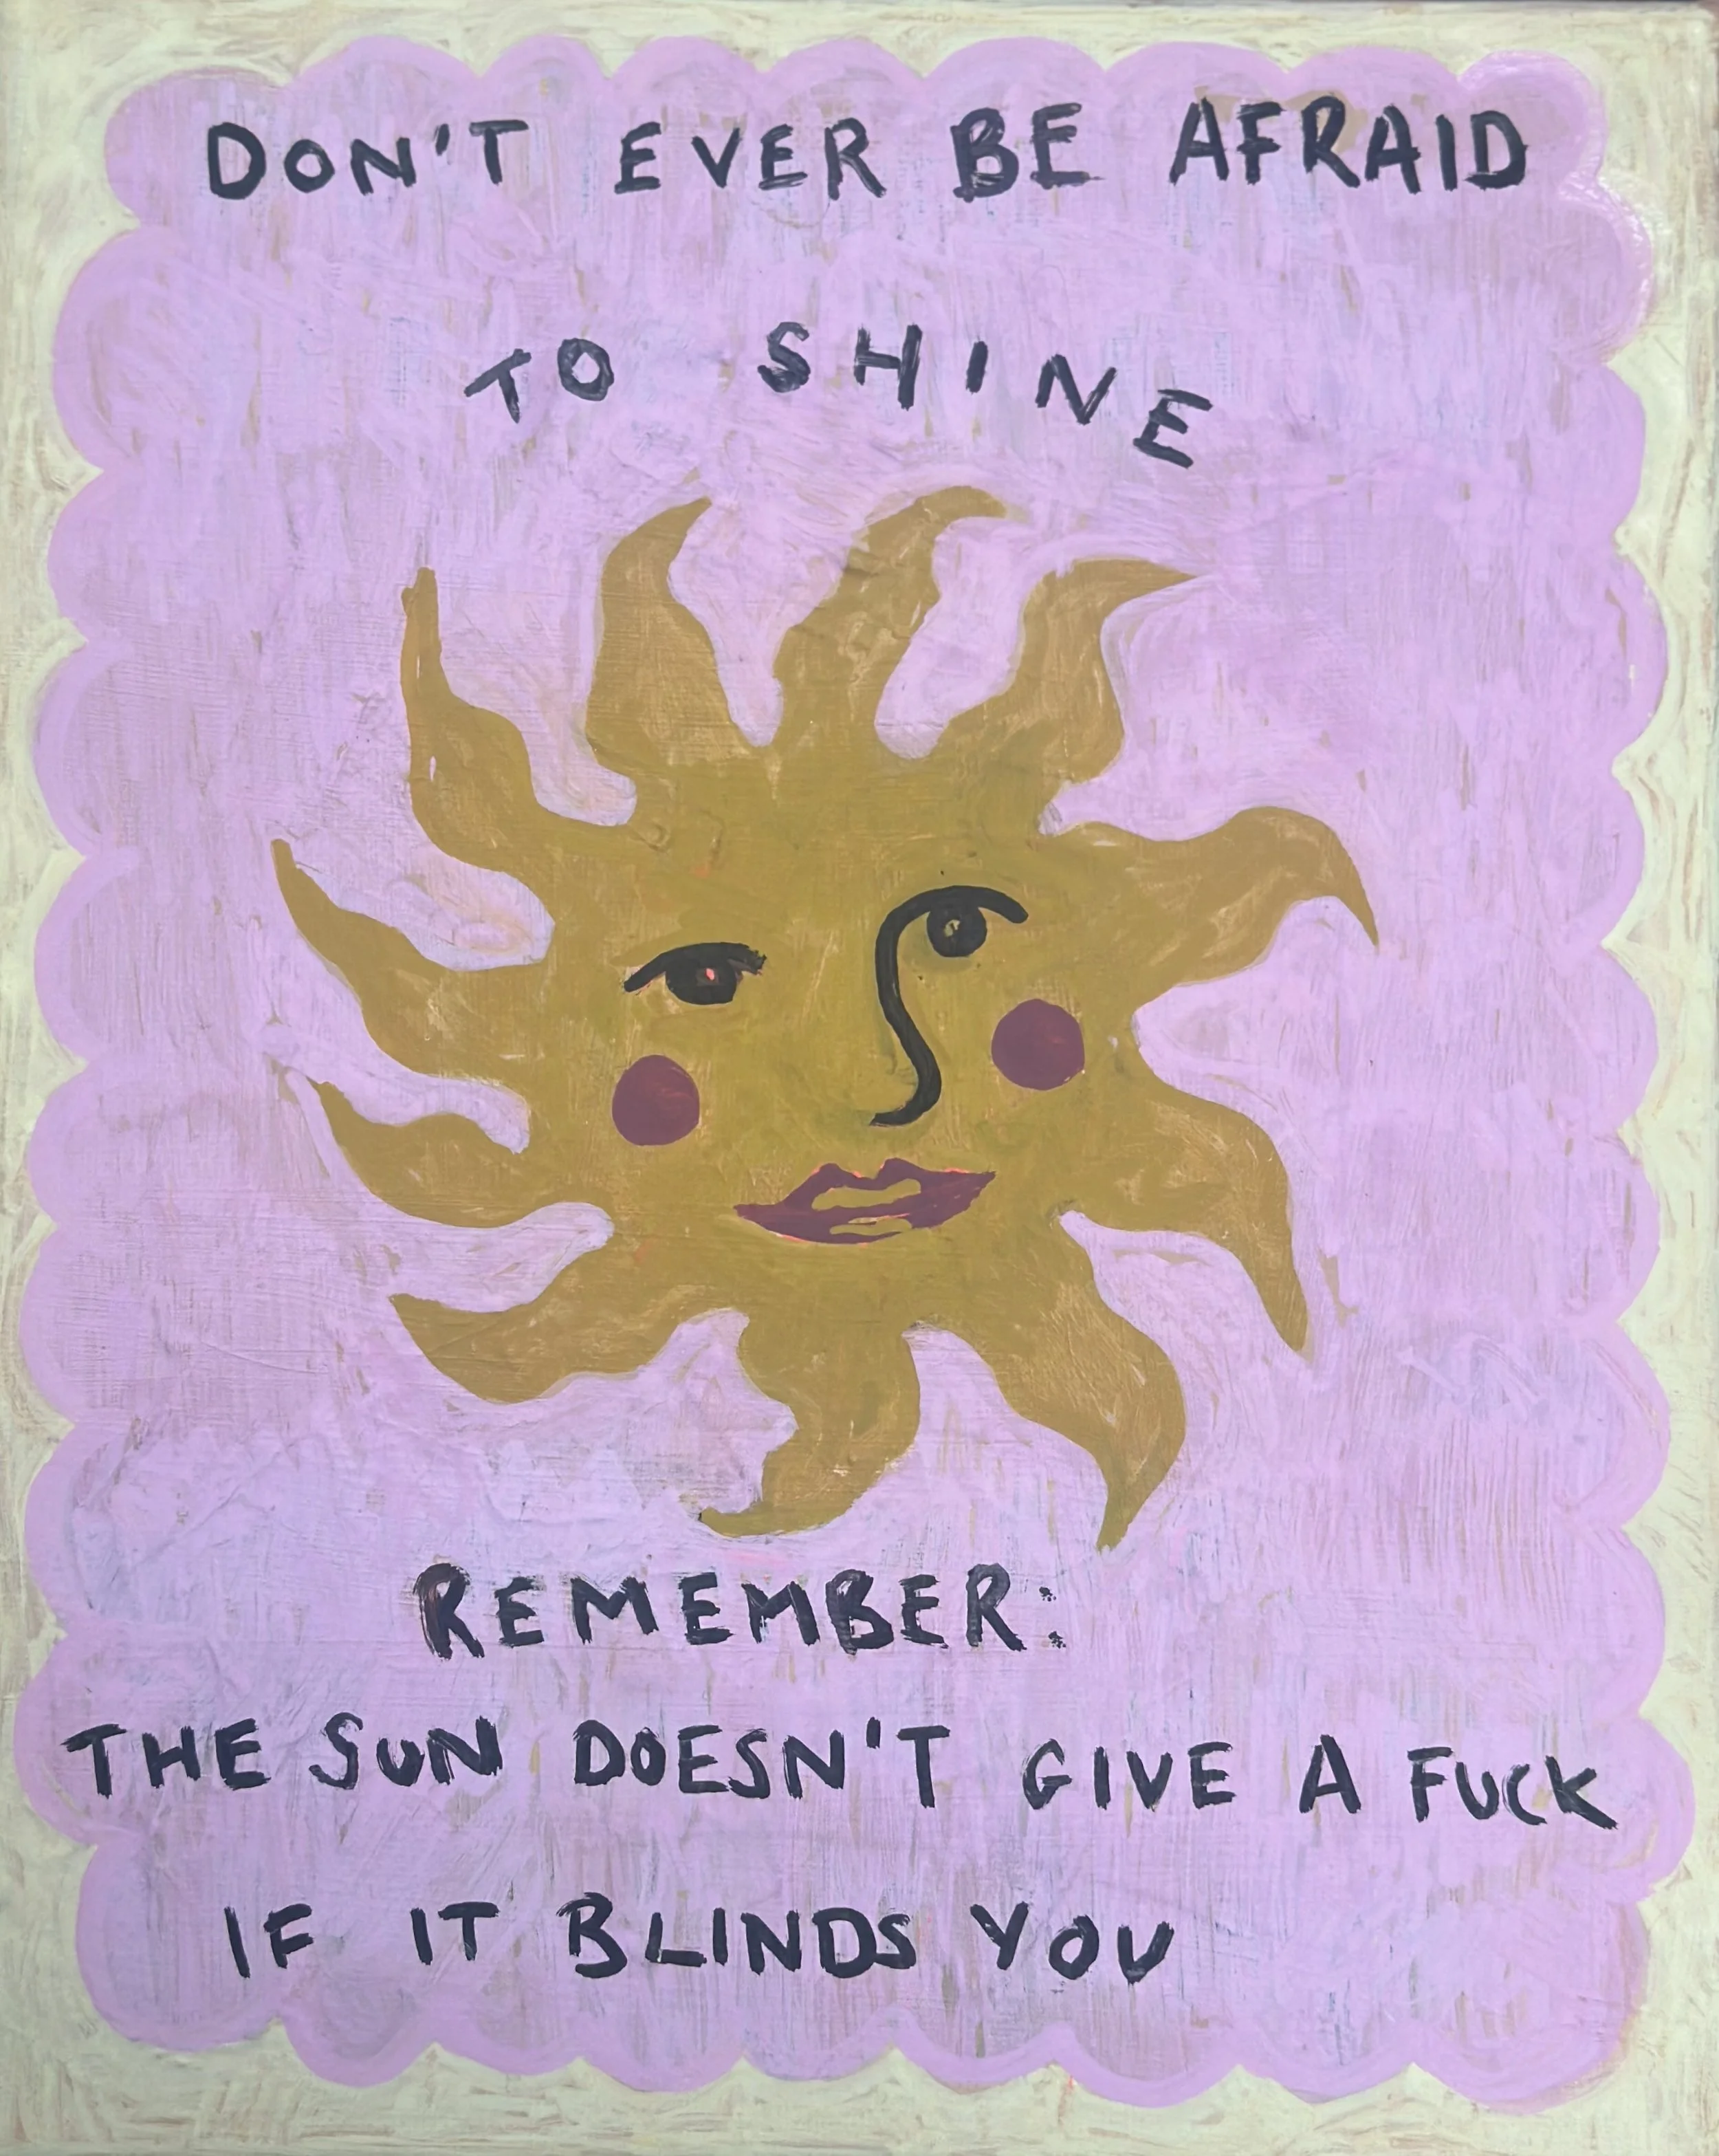 DON'T EVER BE AFRAID
TO SHINE
REMEMBER:
THE SUN DOESN'T GIVE A FUCK
IF IT BLINDS YOU